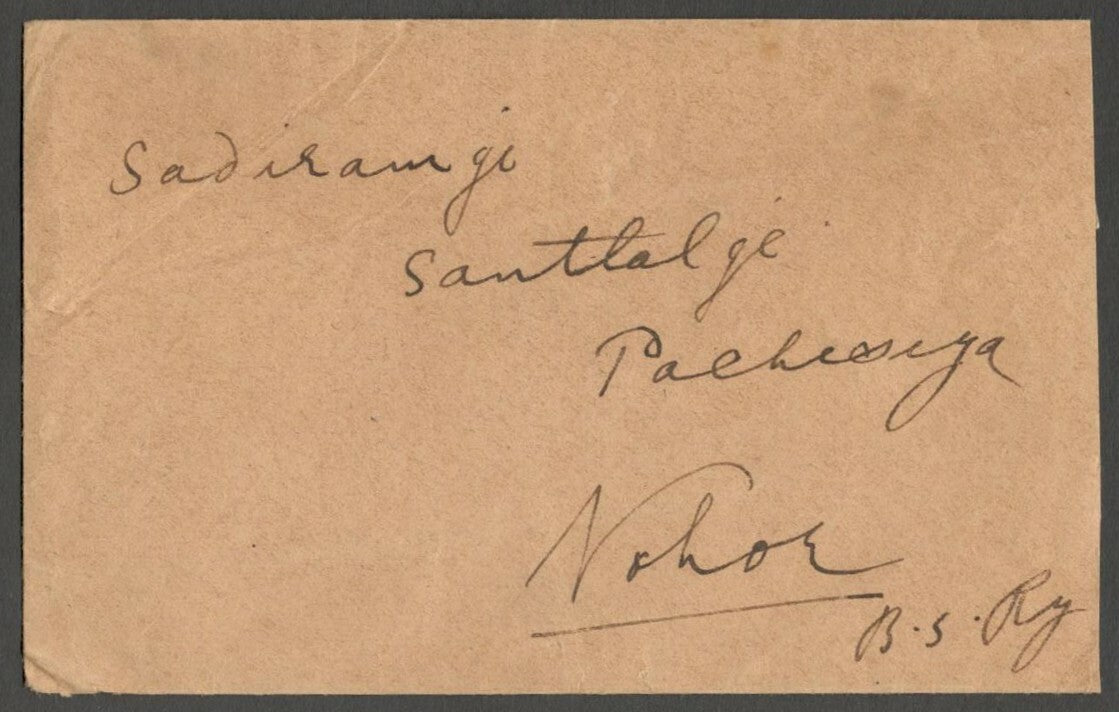 Sadiramji
Santlalji
Pachisiya
Nohor
B.S.Ry